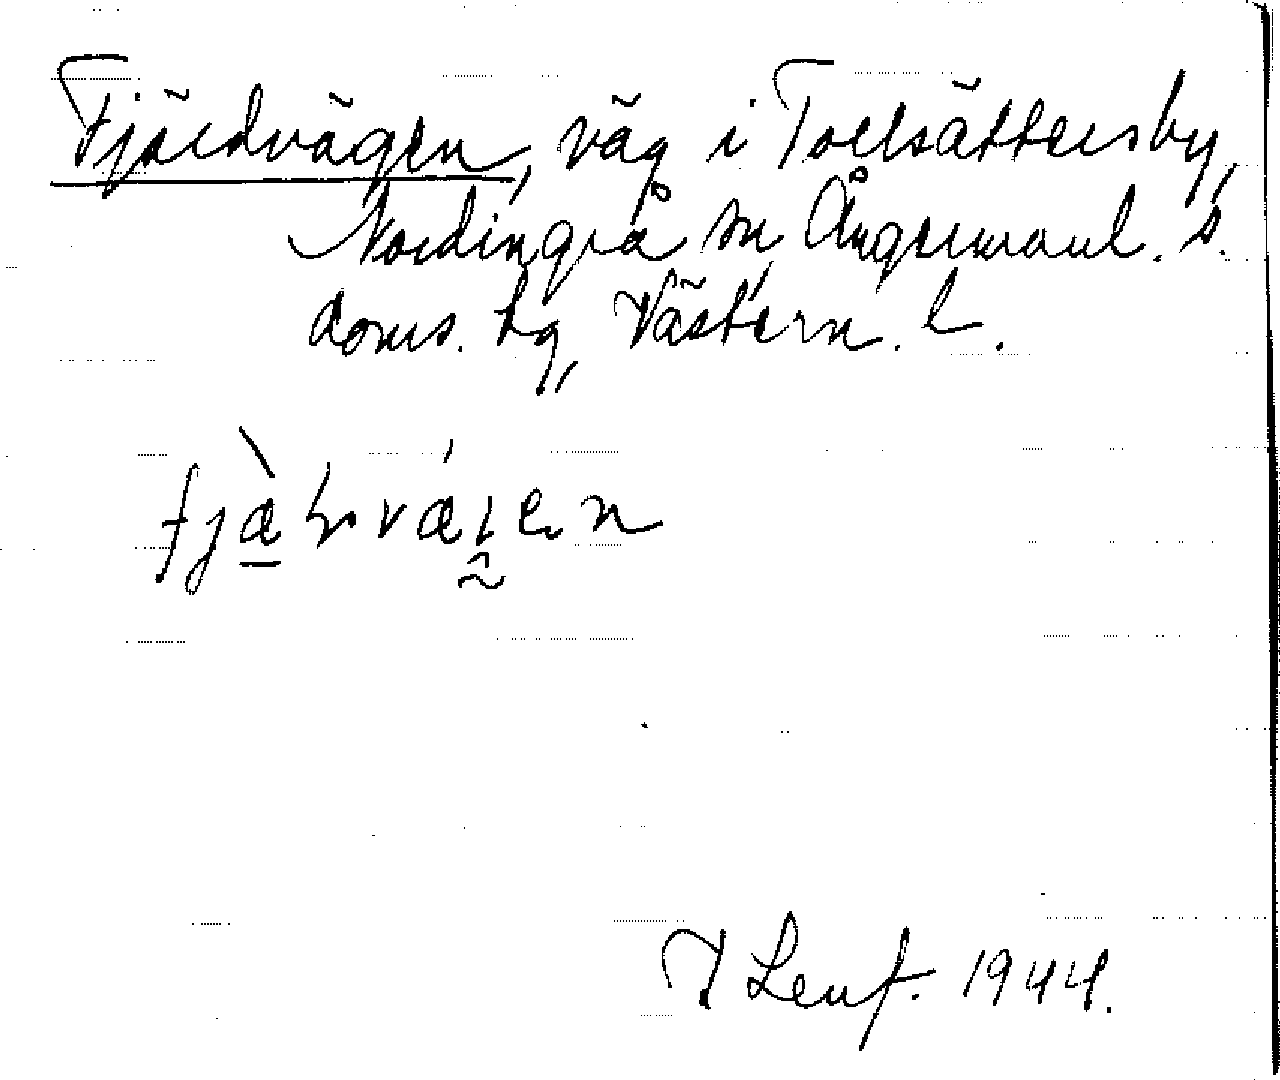 Fjärdvägen, väg i Torrsättersby,
Nordingrå sn Ångermanl. s.
doms. hg, Västern. l.
fjæ̀ḷvǽɪ̯en
J Lenf. 1944.